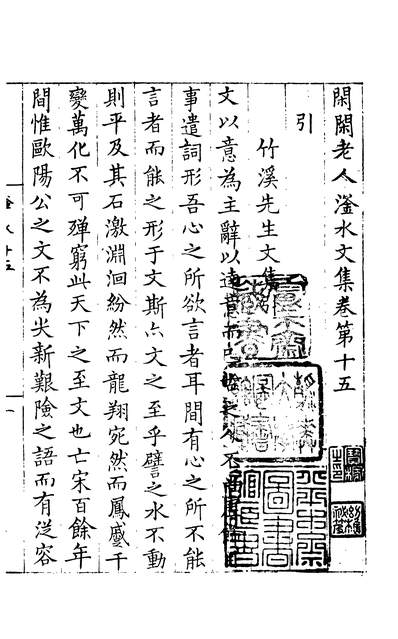 閑閑老人滏水文集卷第十五
引
竹溪先生文集
文以意為主辭以達意而已
事遣詞形吾心之所欲言者耳間有心之所不能
言者而能之形于文斯亦文之至乎譬之水不動
則平及其石激淵洄紛然而龍翔宛然而鳳蹙千
變萬化不可殫窮此天下之至文也亡宋百餘年
間惟歐陽公之文不為尖新艱險之語而有從容